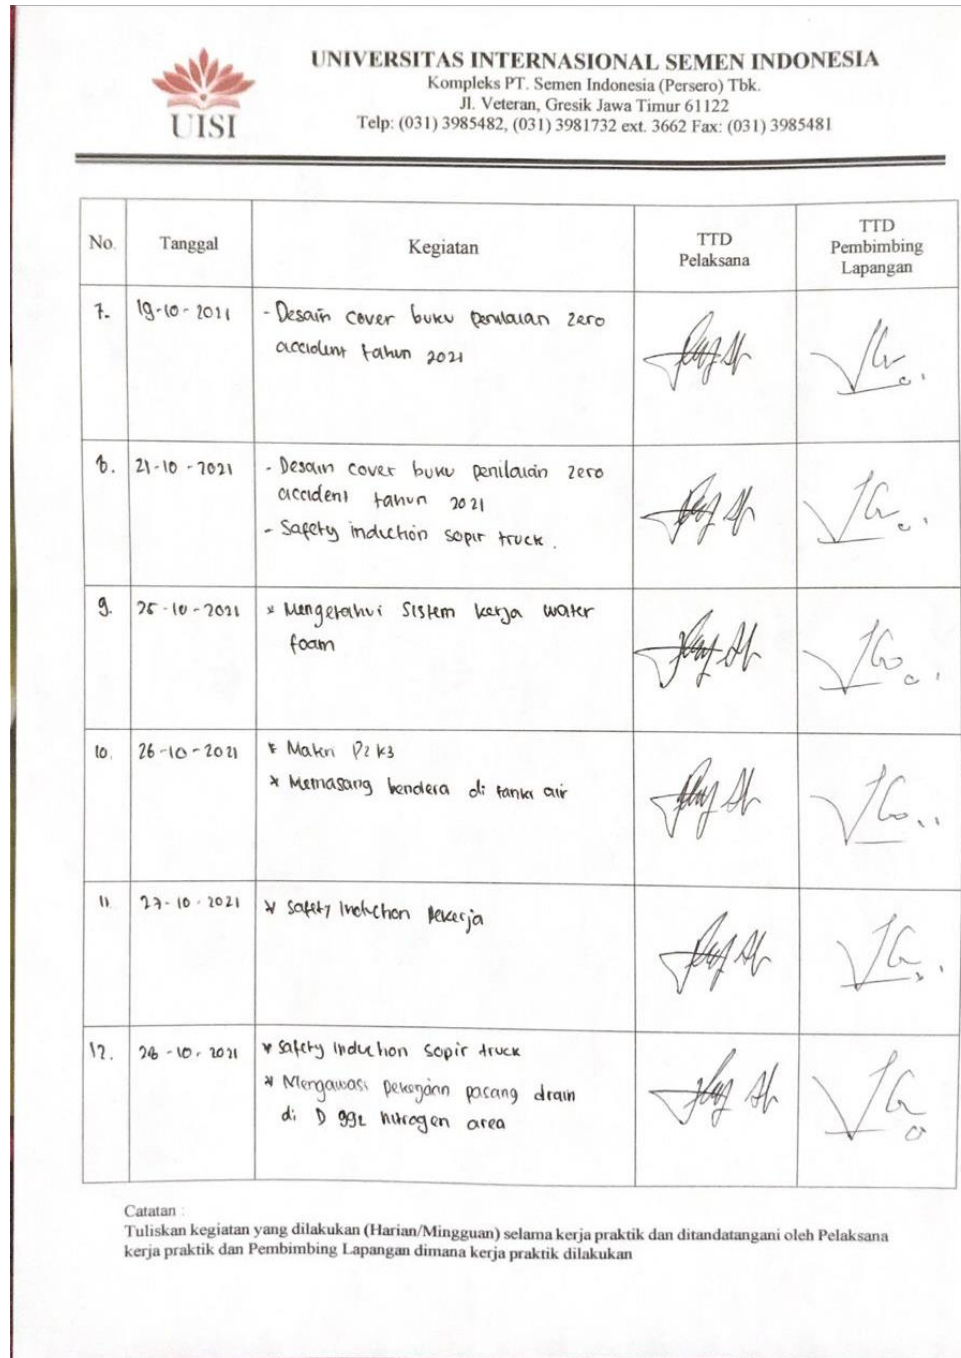 UISI
UNIVERSITAS INTERNASIONAL SEMEN INDONESIA
Kompleks PT. Semen Indonesia (Persero) Tbk.
Jl. Veteran, Gresik Jawa Timur 61122
Telp: (031) 3985482, (031) 3981732 ext. 3662 Fax: (031) 3985481
No. Tanggal Kegiatan TTD Pelaksana TTD Pembimbing Lapangan
7. 19-10-2021 - Desain cover buku penilaian zero
accident tahun 2021
8. 21-10-2021 - Desain cover buku penilaian zero
accident tahun 2021
- Safety induction sopir truck.
9. 25-10-2021 * Mengetahui sistem kerja water
foam
10. 26-10-2021 * Materi P2K3
* Memasang bendera di tanki air
11. 27-10-2021 * Safety Induction Pekerja
12. 28-10-2021 * Safety Induction sopir truck
* Mengawasi pekerjaan pasang drain
di D 992 nitrogen area
Catatan :
Tuliskan kegiatan yang dilakukan (Harian/Mingguan) selama kerja praktik dan ditandatangani oleh Pelaksana
kerja praktik dan Pembimbing Lapangan dimana kerja praktik dilakukan